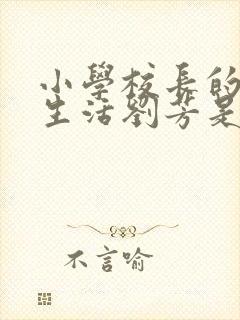 小學校長的
生活劉芳是
不言喻